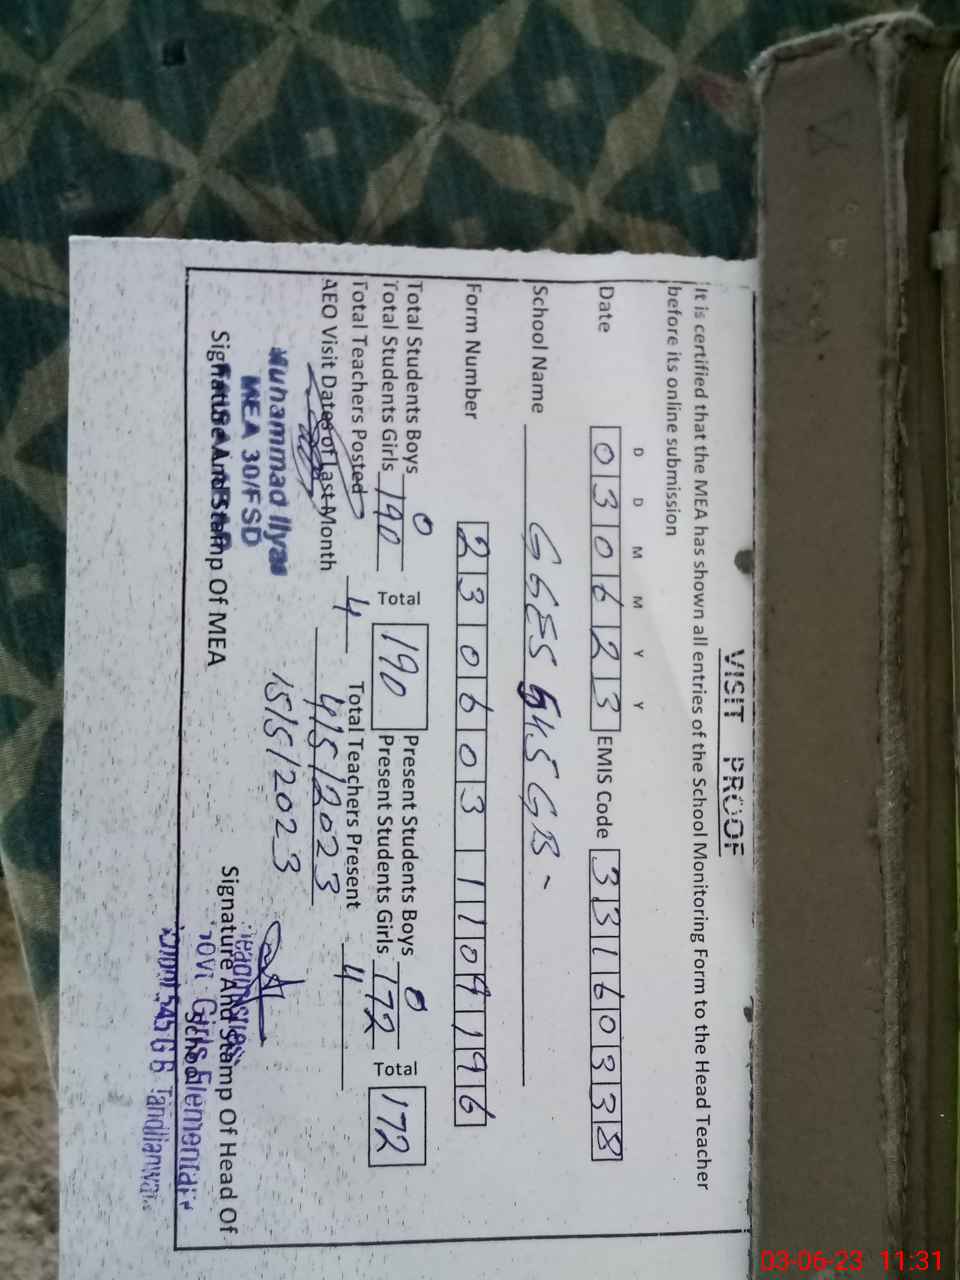 VISIT PROOF
It is certified that the MEA has shown all entries of the School Monitoring Form to the Head Teacher
before its online submission
D D M M Y Y
Date 030623 EMIS Code 33160338
School Name GGES 545 GB
Form Number 2306031109196
Total Students Boys 0 Present Students Boys 0
Total Students Girls 190 Total 190 Present Students Girls 172 Total 172
Total Teachers Posted 4 Total Teachers Present 4
AEO Visit Dates of Last Month 4/5/2023
15/5/2023
Muhammad Ilyas
MEA 30/FSD
Signature And Stamp Of MEA
Signature And Stamp Of Head Of
School
Headmistress
Govt Girls Elementary
School 545 GB Tandlianwala
03-06-23 11:31